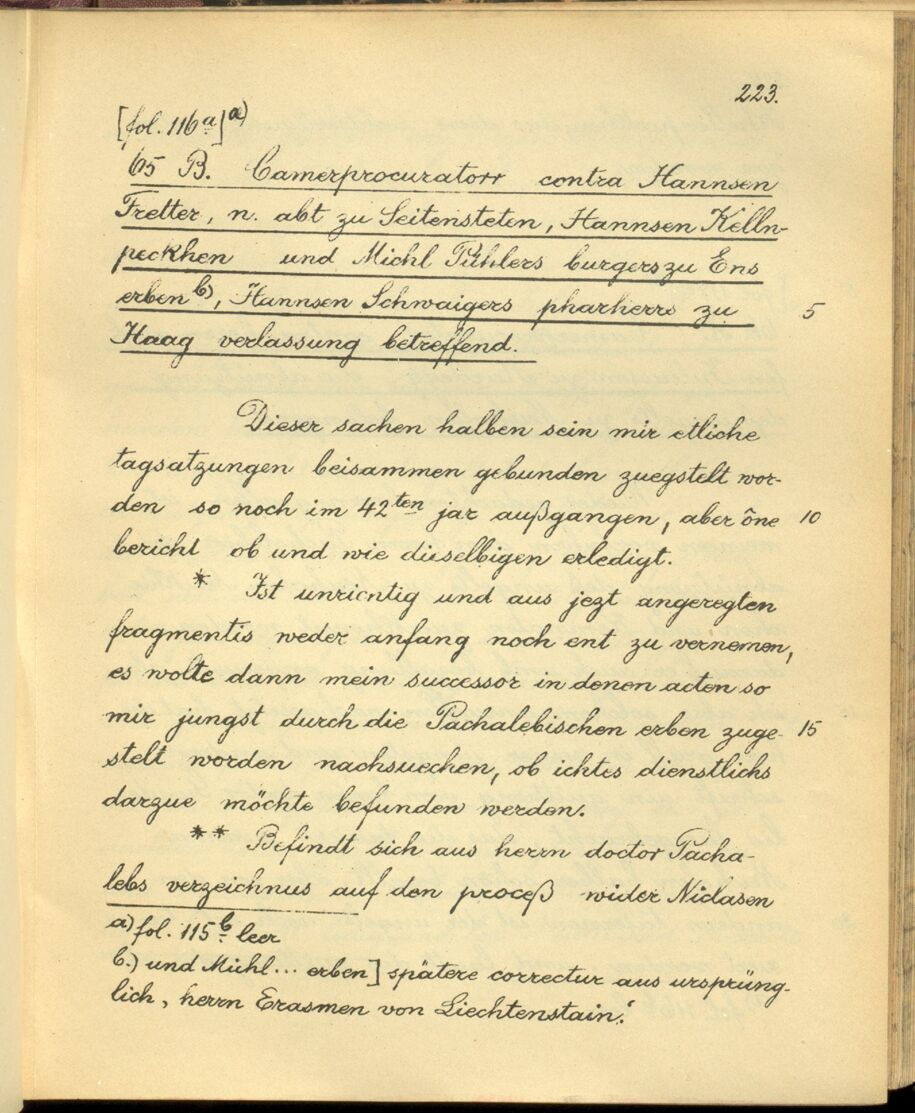 223.
[fol. 116a]a)
65 B. Camerprocuratorr contra Hannsen
Fretter, n. abt zu Seitensteten, Hannsen Kelln-
peckhen und Michl Pühlers burgers zu Ens
erben b), Hannsen Schwaigers pharherrs zu 5
Haag verlassung betreffend.
Dieser sachen halben sein mir etliche
tagsatzungen beisammen gebunden zuegstelt wor-
den so noch im 42ten jar außgangen, aber öne 10
bericht ob und wie dieselbigen erledigt.
* Ist unrichtig und aus jezt angeregten
fragmentis weder anfang noch ent zu vernemen,
es wolte dann mein successor in denen acten so
mir jungst durch die Pachalebischen erben zuge- 15
stelt worden nachsuechen, ob ichtes dienstlichs
darzue möchte befunden werden.
** Befindt sich aus herrn doctor Pacha-
lebs verzeichnus auf den proceß wider Niclasen
a) fol. 115b leer
b.) und Michl... erben] spätere correctur aus ursprüng-
lich, herrn Erasmen von Liechtenstain.'